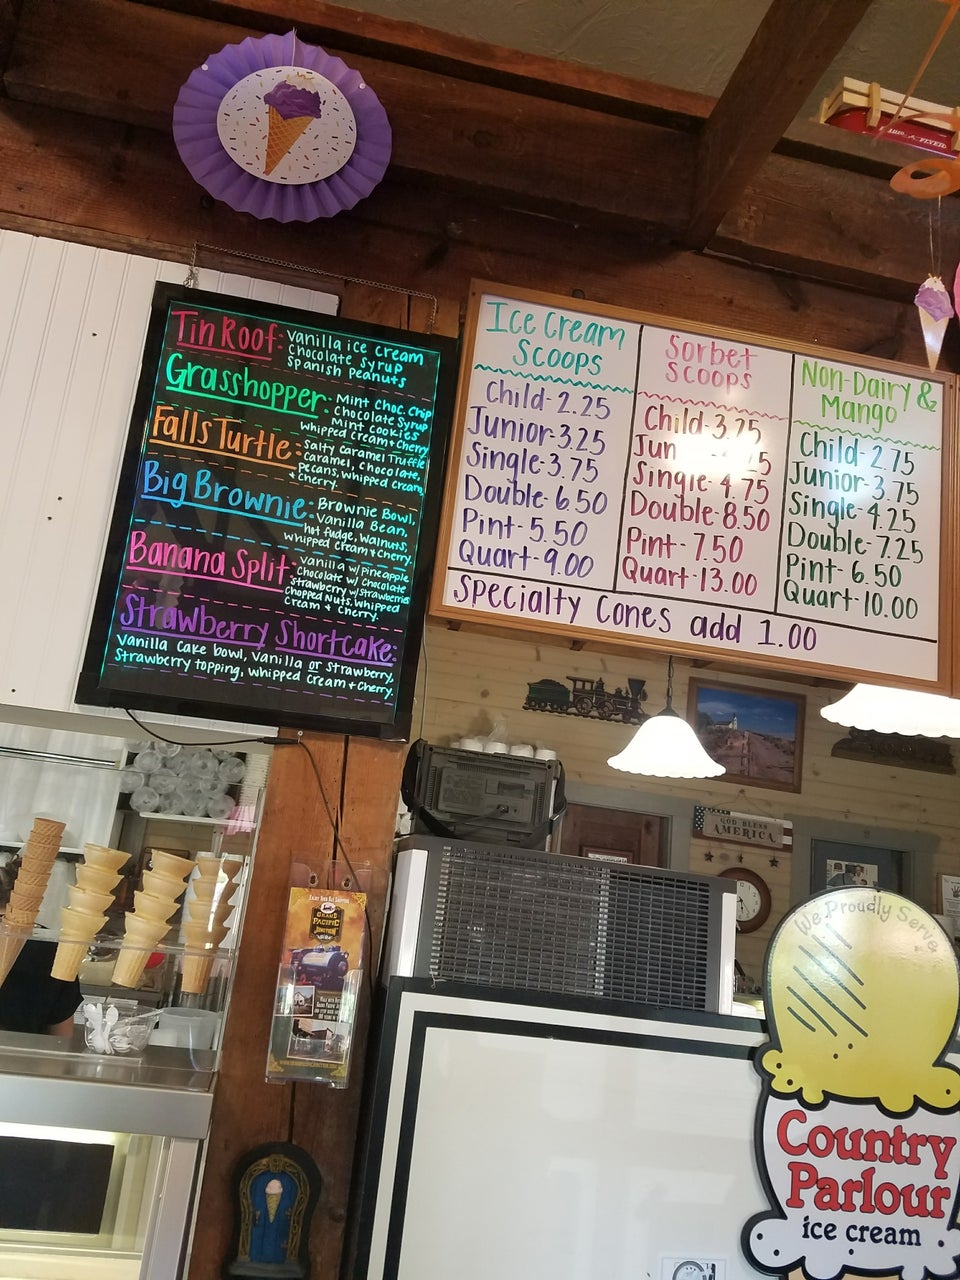 Tin Roof: Vanilla ice cream
Chocolate Syrup
Spanish Peanuts
Grasshopper: Mint Choc. Chip
Chocolate Syrup
Mint Cookies
Whipped Cream + Cherry
Falls Turtle: Salty Caramel Truffle
Caramel, Chocolate,
Pecans, Whipped Cream,
+ Cherry.
Big Brownie: Brownie Bowl,
Vanilla Bean,
hot fudge, Walnuts,
Whipped Cream + Cherry.
Banana Split: Vanilla w/ Pineapple
Chocolate w/ Chocolate
Strawberry w/ Strawberries
Chopped Nuts, Whipped
Cream & Cherry.
Strawberry Shortcake:
Vanilla cake bowl, Vanilla or Strawberry,
Strawberry topping, Whipped Cream + Cherry.
Ice Cream
Scoops
Child - 2.25
Junior - 3.25
Single - 3.75
Double - 6.50
Pint - 5.50
Quart - 9.00
Sorbet
Scoops
Child - 3.25
Jun
Single - 4.75
Double - 8.50
Pint - 7.50
Quart - 13.00
Non-Dairy &
Mango
Child - 2.75
Junior - 3.75
Single - 4.25
Double - 7.25
Pint - 6.50
Quart - 10.00
Specialty Cones add 1.00
GOD BLESS
AMERICA
GRAND
PACIFIC
JUNCTION
We Proudly Serve
Country
Parlour
ice cream